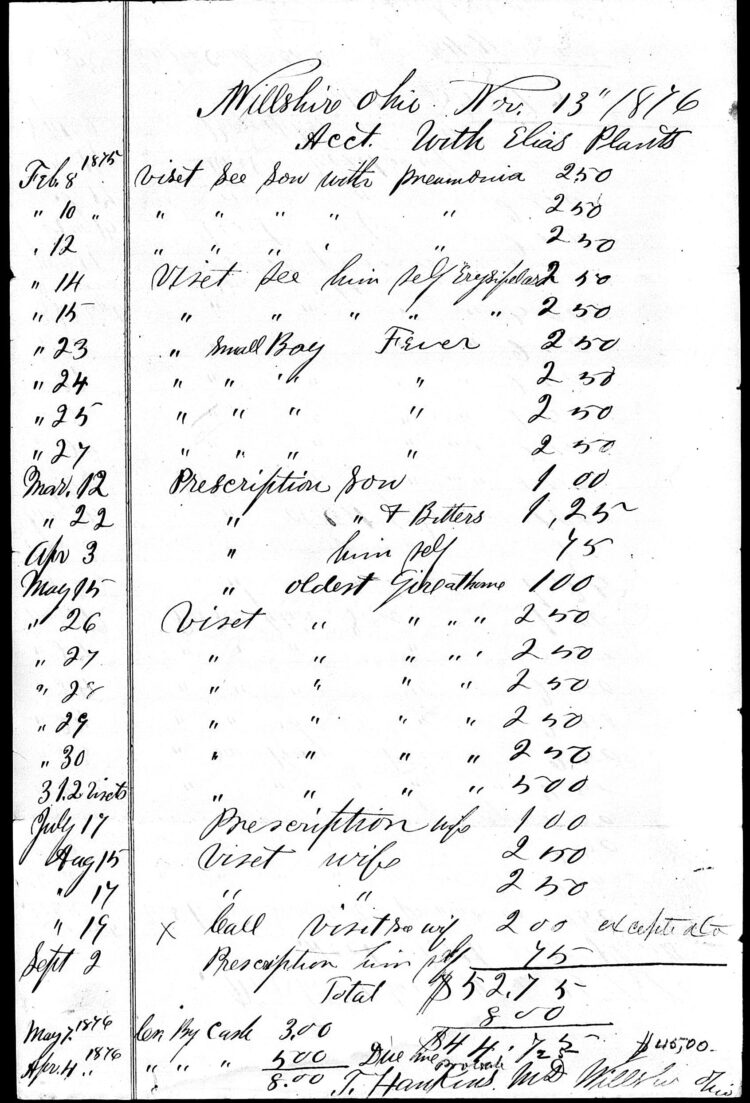 Willshire Ohio. Nov. 13" 1876
Acct. With Elias Plants
Feb. 8 1875 Viset see son with pneumonia 2 50
" 10 " " " " " " 2 50
" 12 " " " " " 2 50
" 14 Viset see him self Erysipelas 2 50
" 15 " " " " " 2 50
" 23 " Small Boy Fever 2 50
" 24 " " " " 2 50
" 25 " " " " 2 50
" 27 " " " " 2 50
Mar. 12 Prescription son 1 00
" 22 " " & Bitters 1,25
Apr 3 " him self 75
May 15 " oldest Gireathome 1 00
" 26 Viset " " " " 2 50
" 27 " " " " 2 50
" 28 " " " " 2 50
" 29 " " " " 2 50
" 30 " " " " 2 50
31.2 visets " " " " 5 00
July 17 Prescription wife 1 00
Aug 15 Viset wife 2 50
" 17 " " 2 50
" 19 x Call visit see wif 2 00
Sept 2 Prescription him self 75
Total $52.75
8 00
May 7. 1876 By Cash 3.00 $44.75 $45,00.
Apr. 4 " 1876 " " " 5 00 Due me
8.00 T. Hankins. MD Willshire Ohio